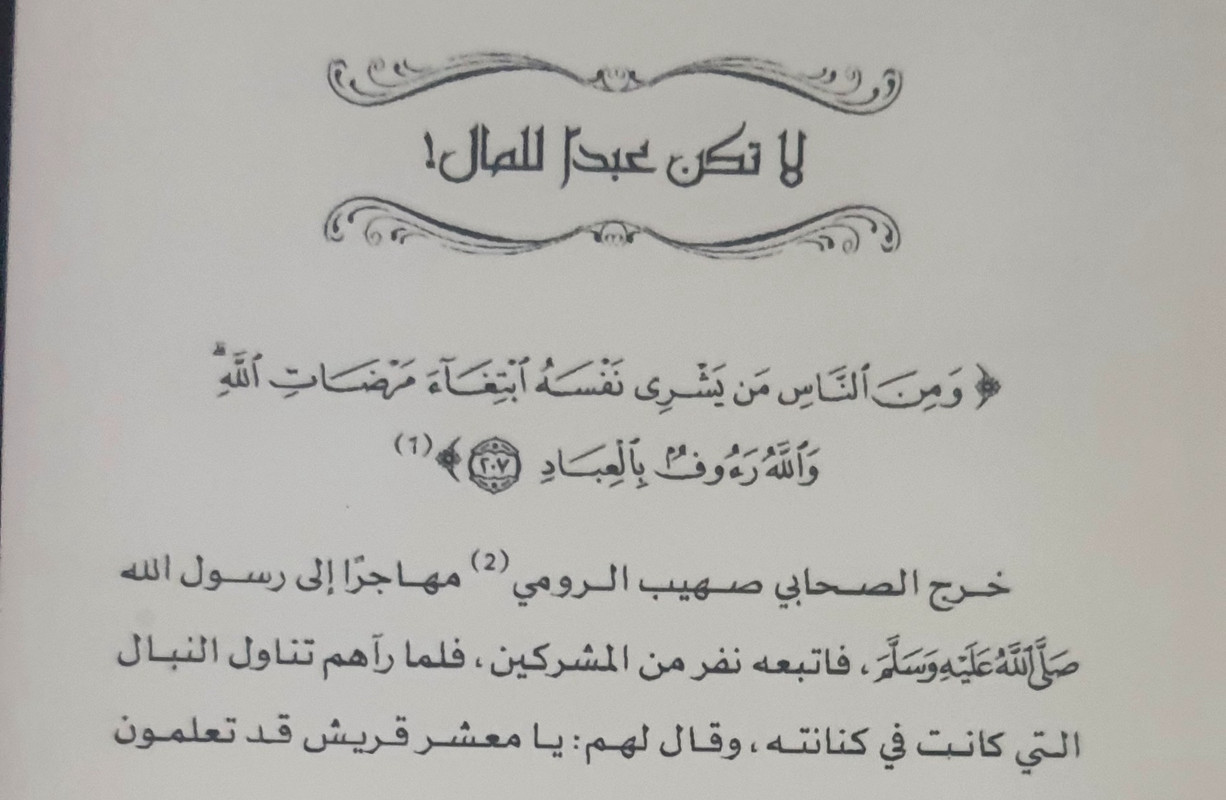 لا تكن عبدا للمال!
﴿ وَمِنَ ٱلنَّاسِ مَن يَشْرِى نَفْسَهُ ٱبْتِغَآءَ مَرْضَاتِ ٱللَّهِ ۗ
وَٱللَّهُ رَءُوفٌۢ بِٱلْعِبَادِ ٢٠٧ ﴾(1)
خرج الصحابي صهيب الرومي(2) مهاجرًا إلى رسول الله
صَلَّى اللَّهُ عَلَيْهِ وَسَلَّمَ، فاتبعه نفر من المشركين، فلما رآهم تناول النبال
التي كانت في كنانته، وقال لهم: يا معشر قريش قد تعلمون